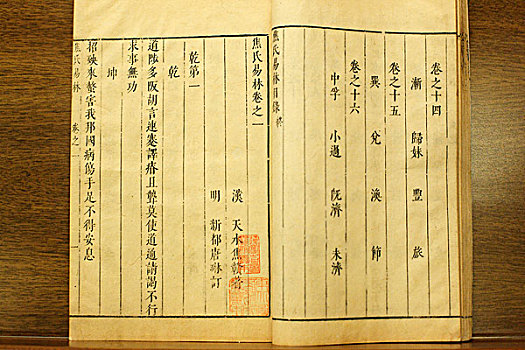 卷之十四
漸 歸妹 豐 旅
卷之十五
巽 兌 渙 節
卷之十六
中孚 小過 旣濟 未濟
焦氏易林目錄終
焦氏易林卷之一
漢 天水焦贛著
明 新都唐琳訂
乾第一
乾
道陟多阪胡言連蹇譯瘖且聾莫使道通請謁不行
求事無功
坤
招殃來螫害我邦國病傷手足不得安息
焦氏易林 卷之一